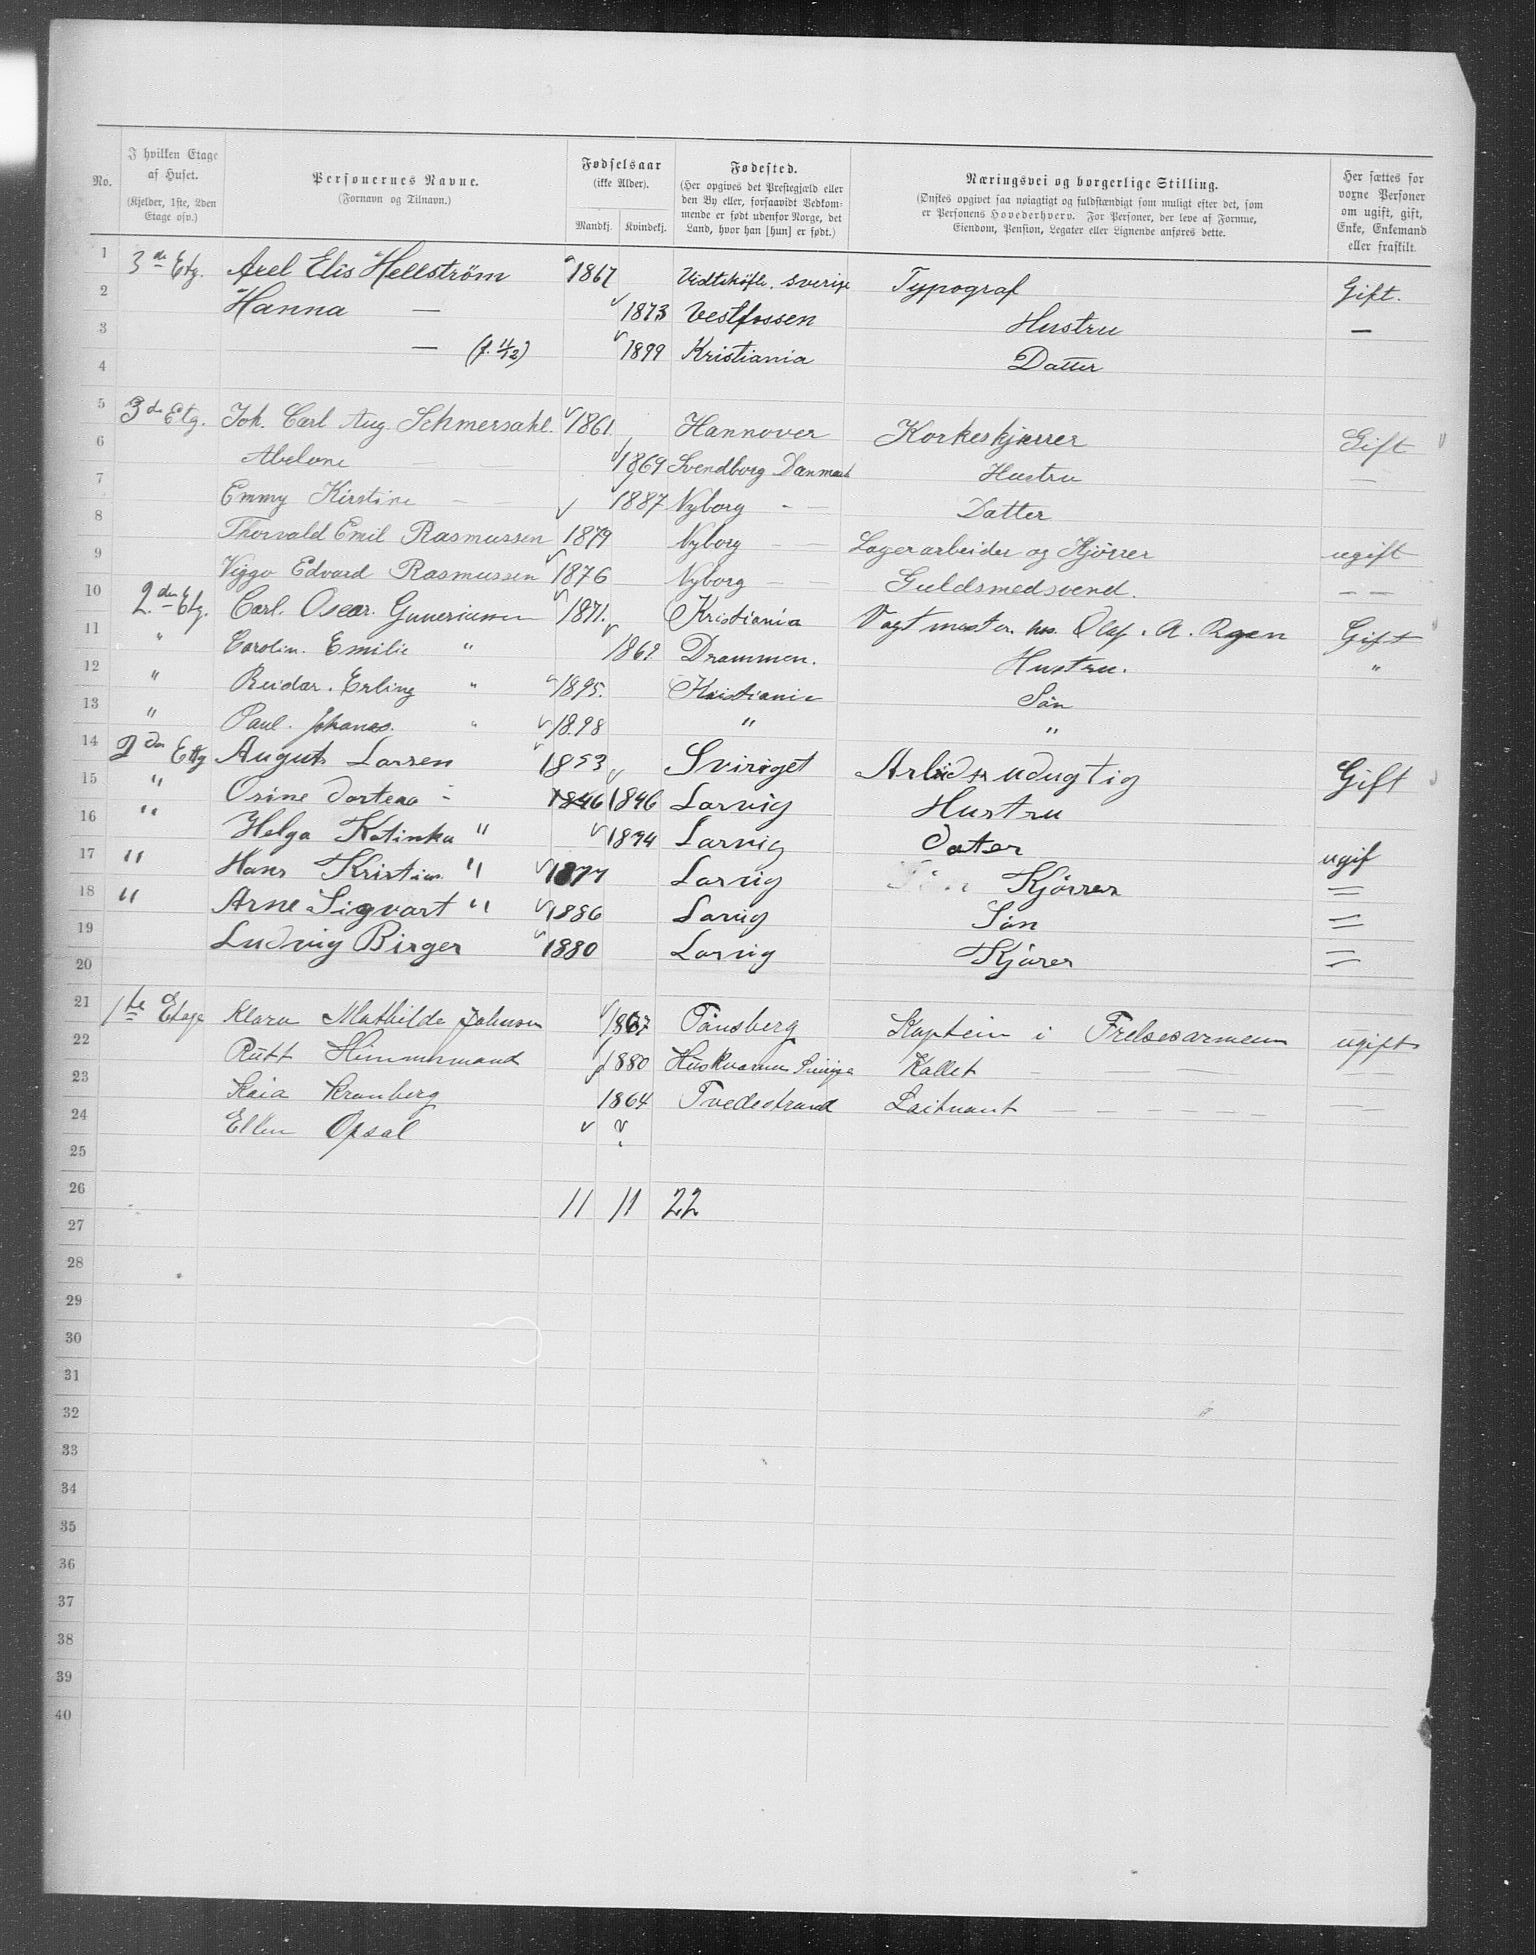 No. | I hvilken Etage af Huset. (Kjelder, 1ste, 2den Etage osv.) | Personernes Navne. (Fornavn og Tilnavn.) | Fødselsaar (ikke Alder). Mandkj. Kvindekj. | Fødested. (Her opgives det Prestegjæld eller den By eller, forsaavidt Vedkommende er født udenfor Norge, det Land, hvor han [hun] er født.) | Næringsvei og borgerlige Stilling. (Ønskes opgivet saa nøiagtigt og fuldstændigt som muligt efter det, som er Personens Hovederhverv. For Personer, der leve af Formue, Eiendom, Pension, Legater eller Lignende anføres dette. | Her sættes for voxne Personer om ugift, gift, Enke, Enkemand eller fraskilt.
1 3de Etg. Axel Elis Hellström 1867 Sverige Typograf Gift.
2 Hanna — 1873 Vestfossen Hustru —
3 — 1899 Kristiania Datter
4
5 3de Etg. Joh. Carl Aug Schmersahl. 1861 Hannover Korkeskjærer Gift
6 Abelone — — 1869 Svendborg Danmark Hustru —
7 Emmy Kirstine — — 1887 Nyborg — — Datter
8 Thorvald Emil Rasmussen 1879 Nyborg — — Lagerarbeider og Kjører ugift
9 Viggo Edvard Rasmussen 1876 Nyborg — — Guldsmedsvend. — —
10 2.den Etg. Carl. Oscar. Guneriussen 1871. Kristiania Vagtmester. hos. Olaf. A. Gift
11 " Carolin. Emilie " 1869 Drammen. Hustru. "
12 " Reidar. Erling " 1895. Kristiania Søn
13 " Paul. Johanes. " 1898 " "
14 2den Etg August Larsen 1853 Sveriget Arbeidsudugtig Gift
15 " Osine Dortea - 1846 1846 Larvig Hustru
16 " Helga Katinka " 1874 Larvig Dater ugif
17 " Hans Kristian " 1877 Larvig Søn Kjørrer =
18 " Arne Sigvart " 1886 Larvig Søn =
19 Ludvig Birger 1880 Larvig Kjører =
20
21 1te Etage Klara Mathilde Johnsen 1867 Tønsberg Kaptein i Frelsesarmeen ugift
22 Rutt Himmermand 1880 Huskvarna Sverige Kallet — — — —
23 Kaia Kranberg 1864 Tvedestrand Laitnant — — — — —
24 Ellen Opsal ?
25
26 11 11 22
27
28
29
30
31
32
33
34
35
36
37
38
39
40